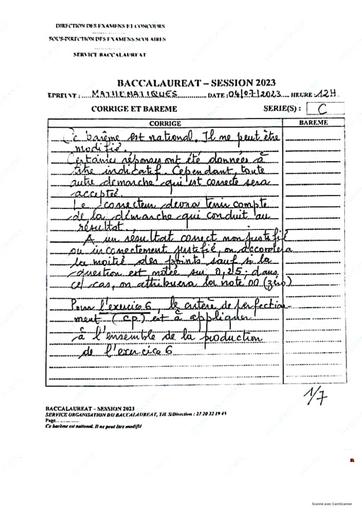 DIRECTION DES EXAMENS ET CONCOURS
SOUS-DIRECTION DES EXAMENS SCOLAIRES
SERVICE BACCALAUREAT
BACCALAUREAT – SESSION 2023
EPREUVE : MATHEMATIQUES DATE : 04/07/2023 HEURE : 12H
CORRIGE ET BAREME SERIE(S) : C
CORRIGE BAREME
Ce barème est national. Il ne peut être
modifié.
Certaines réponses ont été données à
titre indicatif. Cependant, toute
autre démarche qui est correcte sera
acceptée.
Le correcteur devra tenir compte
de la démarche qui conduit au
résultat.
A un résultat correct non justifié
ou incorrectement justifié, on accordera
la moitié des points sauf si la
question est notée sur 0,25 ; dans
ce cas, on attribuera la note 00 (zéro)
Pour l'exercice 6, le critère de perfection-
nement (CP) est à appliquer
à l'ensemble de la production
de l'exercice 6
1/7
BACCALAUREAT – SESSION 2023
SERVICE ORGANISATION DU BACCALAUREAT, Tél. S/Direction : 27 20 32 19 45
Page
Ce barème est national. Il ne peut être modifié
Scanné avec CamScanner